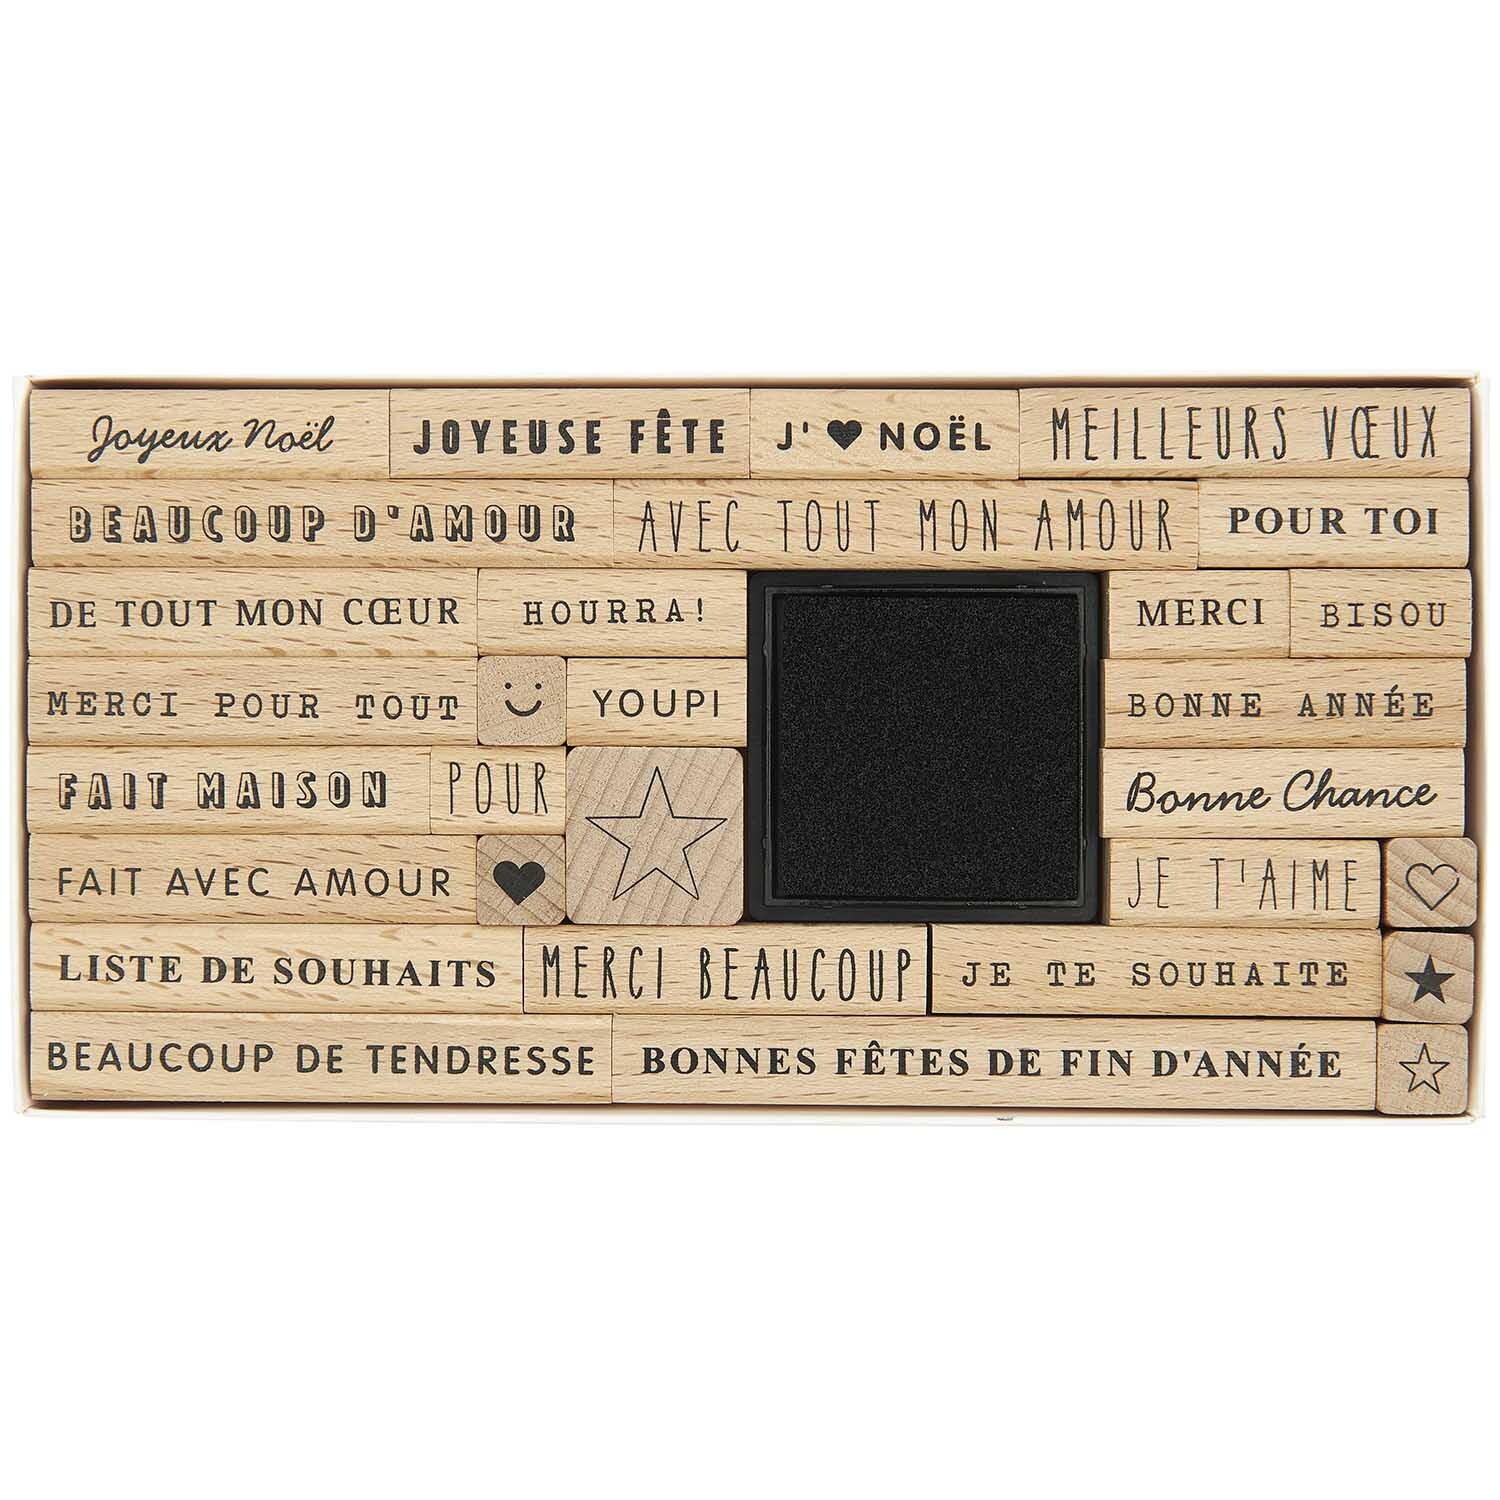 Joyeux Noël
JOYEUSE FÊTE
J'♥ NOËL
MEILLEURS VŒUX
BEAUCOUP D'AMOUR
AVEC TOUT MON AMOUR
POUR TOI
DE TOUT MON CŒUR
HOURRA!
MERCI
BISOU
MERCI POUR TOUT
YOUPI
BONNE ANNÉE
FAIT MAISON
POUR
Bonne Chance
FAIT AVEC AMOUR
JE T'AIME
LISTE DE SOUHAITS
MERCI BEAUCOUP
JE TE SOUHAITE
BEAUCOUP DE TENDRESSE
BONNES FÊTES DE FIN D'ANNÉE